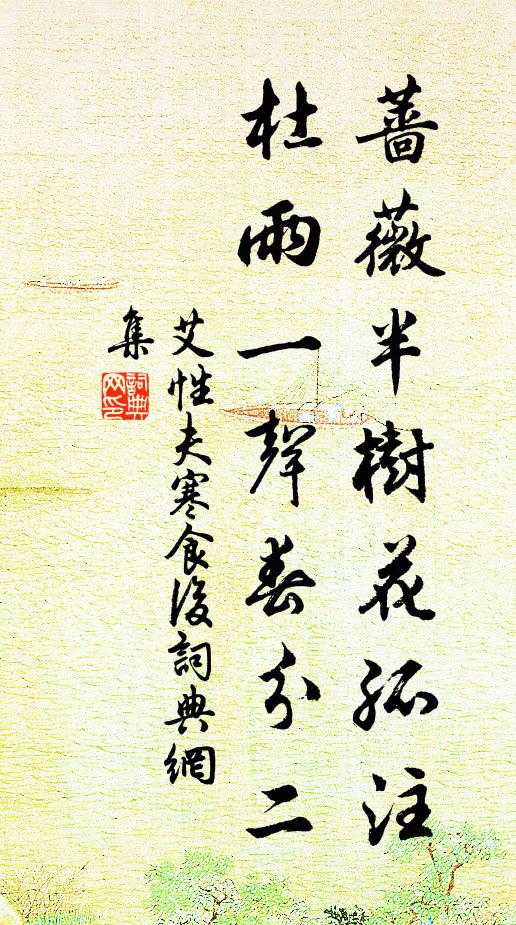 薔薇半樹花孤注
杜雨一聲春分二
艾性夫寒食後詞典網
集
詞典
网印